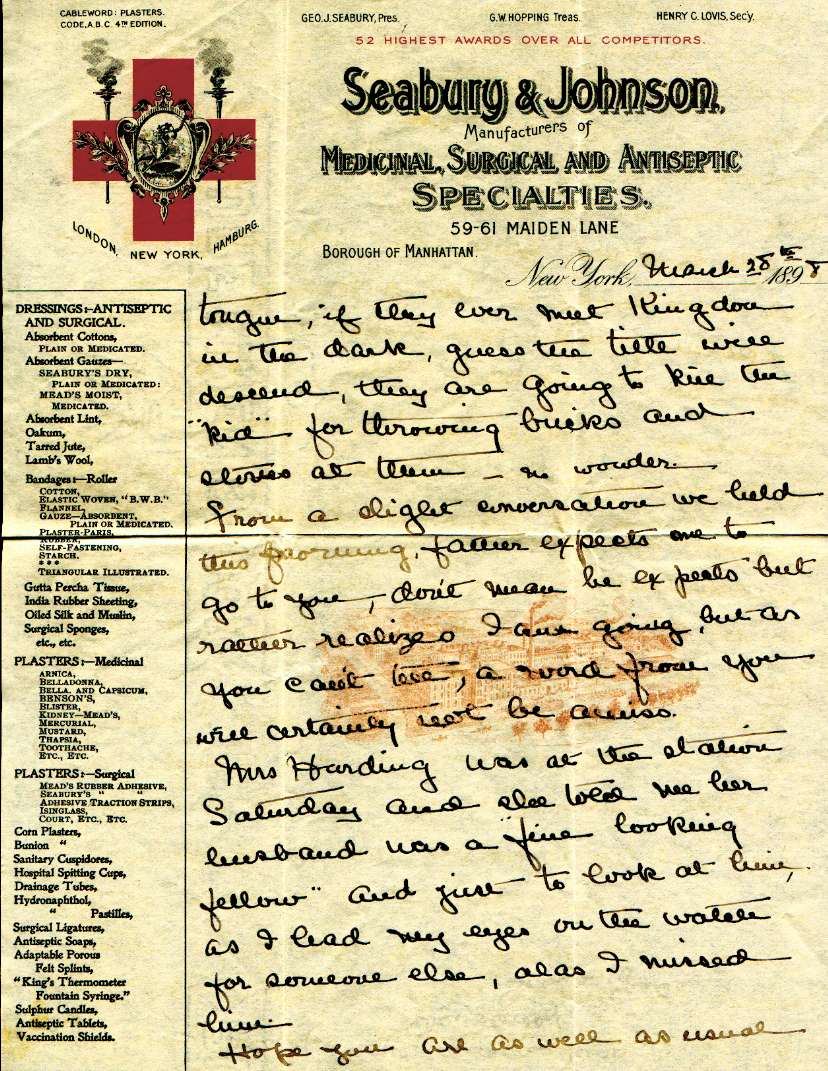 CABLEWORD: PLASTERS.
CODE, A.B.C. 4TH EDITION.
GEO. J. SEABURY, Pres.
G.W. HOPPING Treas.
HENRY C. LOVIS, Sec'y.
52 HIGHEST AWARDS OVER ALL COMPETITORS.
Seabury & Johnson,
Manufacturers of
MEDICINAL, SURGICAL AND ANTISEPTIC
SPECIALTIES.
59-61 MAIDEN LANE
BOROUGH OF MANHATTAN.
LONDON, NEW YORK, HAMBURG.
New York, March 28th 1898
DRESSINGS:—ANTISEPTIC
AND SURGICAL.
Absorbent Cottons,
PLAIN OR MEDICATED.
Absorbent Gauzes—
SEABURY'S DRY,
PLAIN OR MEDICATED:
MEAD'S MOIST,
MEDICATED.
Absorbent Lint,
Oakum,
Tarred Jute,
Lamb's Wool,
Bandages:—Roller
COTTON,
ELASTIC WOVEN, "B.W.B."
FLANNEL,
GAUZE—ABSORBENT,
PLAIN OR MEDICATED.
PLASTER-PARIS,
RUBBER,
SELF-FASTENING,
STARCH.
***
TRIANGULAR ILLUSTRATED.
Gutta Percha Tissue,
India Rubber Sheeting,
Oiled Silk and Muslin,
Surgical Sponges,
etc., etc.
PLASTERS:—Medicinal
ARNICA,
BELLADONNA,
BELLA. AND CAPSICUM,
BENSON'S,
BLISTER,
KIDNEY—MEAD'S,
MERCURIAL,
MUSTARD,
THAPSIA,
TOOTHACHE,
ETC., ETC.
PLASTERS:—Surgical
MEAD'S RUBBER ADHESIVE,
SEABURY'S " "
ADHESIVE TRACTION STRIPS,
ISINGLASS,
COURT, ETC., ETC.
Corn Plasters,
Bunion "
Sanitary Cuspidores,
Hospital Spitting Cups,
Drainage Tubes,
Hydronaphthol,
" Pastilles,
Surgical Ligatures,
Antiseptic Soaps,
Adaptable Porous
Felt Splints,
"King's Thermometer
Fountain Syringe."
Sulphur Candles,
Antiseptic Tablets,
Vaccination Shields.
tongue, if they ever meet Kingdon
in the dark, guess the title will
descend, they are going to kill the
"kid" for throwing bricks and
stones at them — no wonder.
From a slight conversation we held
this morning, father expects me to
go to you, don't mean he expects but
rather realizes I am going, but as
you can't tell, a word from you
will certainly not be amiss.
Mrs Harding was at the station
Saturday and she told me her
husband was a "fine looking
fellow" and just to look at him,
as I had my eyes on the watch
for someone else, alas I missed
him.
Hope you are as well as usual